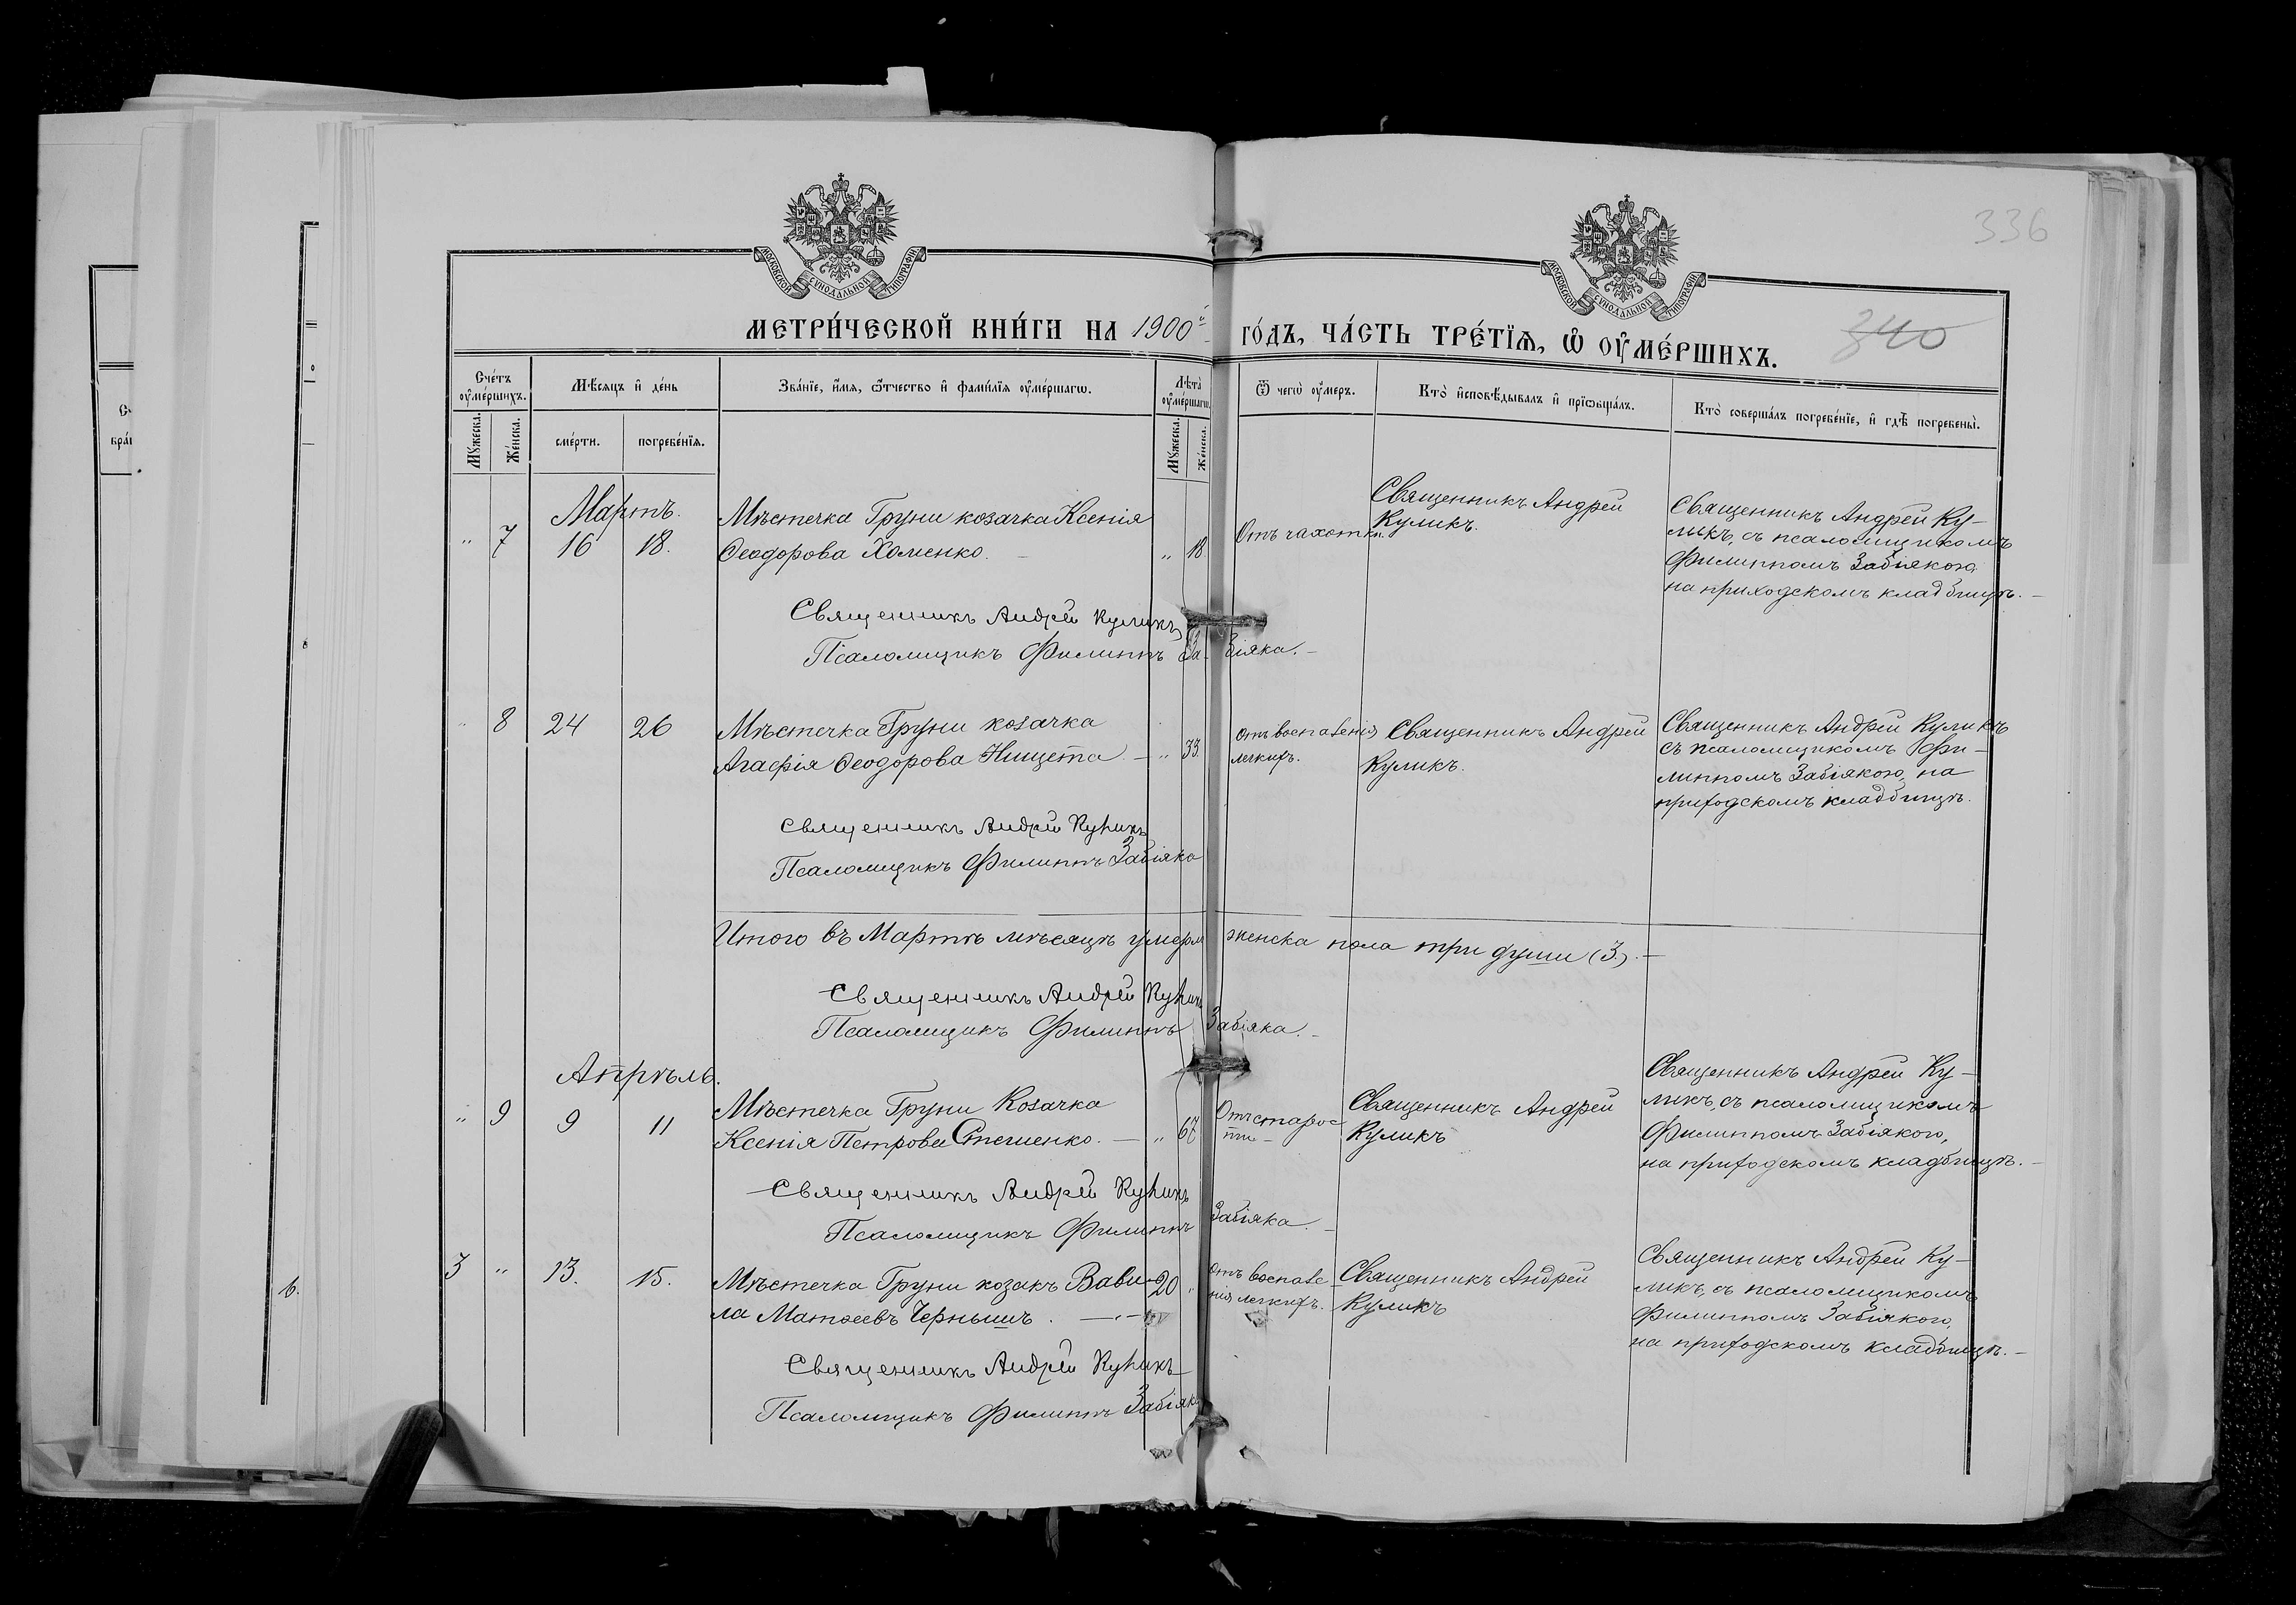 336
340
МОСКОВСКОЙ СѴНОДАЛЬНОЙ ТИПОГРАФІИ
МОСКОВСКОЙ СѴНОДАЛЬНОЙ ТИПОГРАФІИ
МЕТРИ́ЧЕСКОЙ КНИ́ГИ НА 1900й ГО́ДЪ, ЧА́СТЬ ТРЕ́ТІѦ, Ѡ҆ ОУ҆МЕ́РШИХЪ.
Сче́тъ оу҆ме́ршихъ.
Мꙋ́жеска.
Же́нска.
Мѣ́сѧцъ и҆ де́нь
сме́рти.
погребе́нїѧ.
Зва́нїе, и҆́мѧ, ѻ҆́тчество и҆ фамѝлїѧ оу҆ме́ршагѡ.
Лѣ́та оу҆ме́ршагѡ.
Мꙋ́жеска.
Же́нска.
Ѿ чегѡ̀ оу҆́меръ.
Кто̀ и҆сповѣ́дывалъ и҆ прїѡбща́лъ.
Кто̀ соверша́лъ погребе́нїе, и҆ гдѣ̀ погребены̀.
Мартъ.
„ 7 16 18.
Мѣстечка Груни козачка Ксенія
Ѳеодорова Хоменко.
„ 18.
Отъ чахотки.
Священникъ Андрей
Куликъ.
Священникъ Андрей Ку-
ликъ, съ псаломщикомъ
Филиппомъ Забіякою
на приходскомъ кладбищѣ.
Священникъ Андрей Куликъ
Псаломщикъ Филиппъ Забіяка.
„ 8 24 26
Мѣстечка Груни козачка
Агафія Ѳеодорова Нищета
„ 33.
Отъ воспаленія
легкихъ.
Священникъ Андрей
Куликъ.
Священникъ Андрей Куликъ
съ псаломщикомъ Фи-
липпомъ Забіякою, на
приходскомъ кладбищѣ.
Священникъ Андрей Куликъ
Псаломщикъ Филиппъ Забіяка
Итого въ Мартѣ мѣсяцѣ умерл женска пола три души (3).
Священникъ Андрей Куликъ
Псаломщикъ Филиппъ Забіяка.
Апрѣль.
„ 9 9 11
Мѣстечка Груни Козачка
Ксенія Петрова Стешенко.
„ 67
Отъ старос
ти
Священникъ Андрей
Куликъ
Священникъ Андрей Ку-
ликъ, съ псаломщикомъ
Филиппомъ Забіякою,
на приходскомъ кладбищѣ.
Священникъ Андрей Куликъ
Псаломщикъ Филиппъ Забіяка.
3 „ 13. 15.
Мѣстечка Груни козакъ Вави-
ла Матѳеевъ Чернышъ.
20 „
Отъ воспале
нія легкихъ.
Священникъ Андрей
Куликъ
Священникъ Андрей Ку-
ликъ, съ псаломщикомъ
Филиппомъ Забіякою,
на приходскомъ кладбищѣ.
Священникъ Андрей Куликъ
Псаломщикъ Филиппъ Забіяка